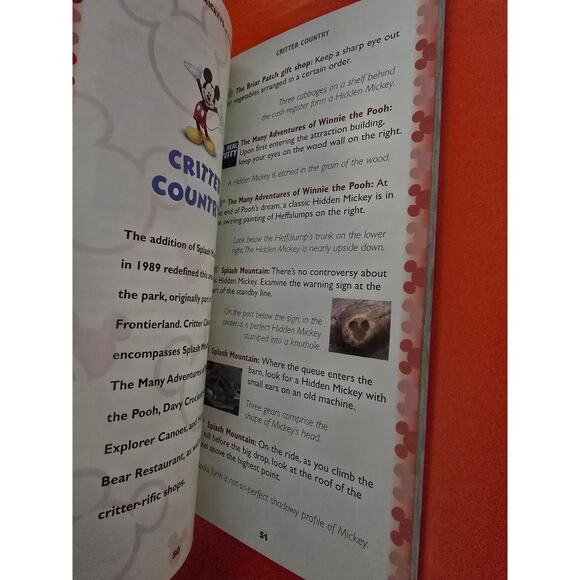 MICKEY'S
CRITTER
COUNTRY
The addition of Splash M
in 1989 redefined this
the park, originally part
Frontierland. Critter Cou
encompasses Splash M
The Many Adventures of
the Pooh, Davy Crocke
Explorer Canoes, and
Bear Restaurant, as
critter-rific shops.
50
CRITTER COUNTRY
The Briar Patch gift shop: Keep a sharp eye out
vegetables arranged in a certain order.
Three cabbages on a shelf behind
the cash register form a Hidden Mickey.
REAL
UFFY
The Many Adventures of Winnie the Pooh:
Upon first entering the attraction building,
keep your eyes on the wood wall on the right.
A Hidden Mickey is etched in the grain of the wood.
The Many Adventures of Winnie the Pooh: At
end of Pooh's dream, a classic Hidden Mickey is in
swirling painting of Heffalumps on the right.
Look below the Heffalump's trunk on the lower
right. The Hidden Mickey is nearly upside down.
Splash Mountain: There's no controversy about
Hidden Mickey. Examine the warning sign at the
rt of the standby line.
On the post below the sign, in the
center, is a perfect Hidden Mickey
stamped into a knothole.
Splash Mountain: Where the queue enters the
barn, look for a Hidden Mickey with
small ears on an old machine.
Three gears comprise the
shape of Mickey's head.
Splash Mountain: On the ride, as you climb the
hill before the big drop, look at the roof of the
nel above the highest point.
ocks form a not-so-perfect shadowy profile of Mickey.
51